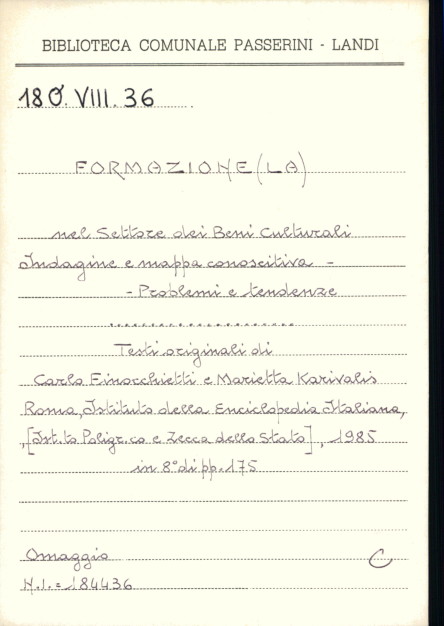 BIBLIOTECA COMUNALE PASSERINI - LANDI
180.VIII.36
FORMAZIONE (LA)
nel Settore dei Beni Culturali
Indagine e mappa conoscitiva -
- Problemi e tendenze
Testi originali di
Carlo Finocchietti e Marietta Karivalis
Roma, Istituto della Enciclopedia Italiana,
,[Ist.to Poligr.co e Zecca dello Stato], 1985
in 8° di pp. 175
Omaggio C
N.I.= 184436